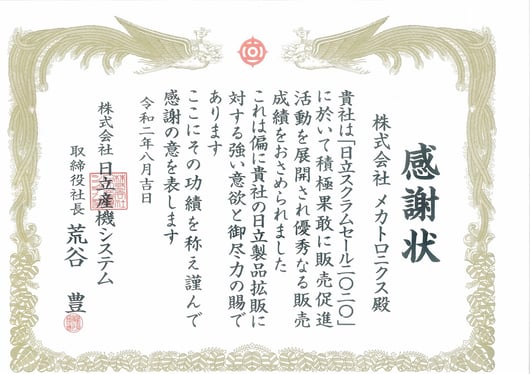 感謝状
株式会社 メカトロニクス殿
貴社は「日立スクラムセール二〇二〇」
に於いて積極果敢に販売促進
活動を展開され優秀なる販売
成績をおさめられました
これは偏に貴社の日立製品拡販に
対する強い意欲と御尽力の賜で
あります
ここにその功績を称え謹んで
感謝の意を表します
令和二年八月吉日
株式会社 日立産機システム
取締役社長 荒谷 豊